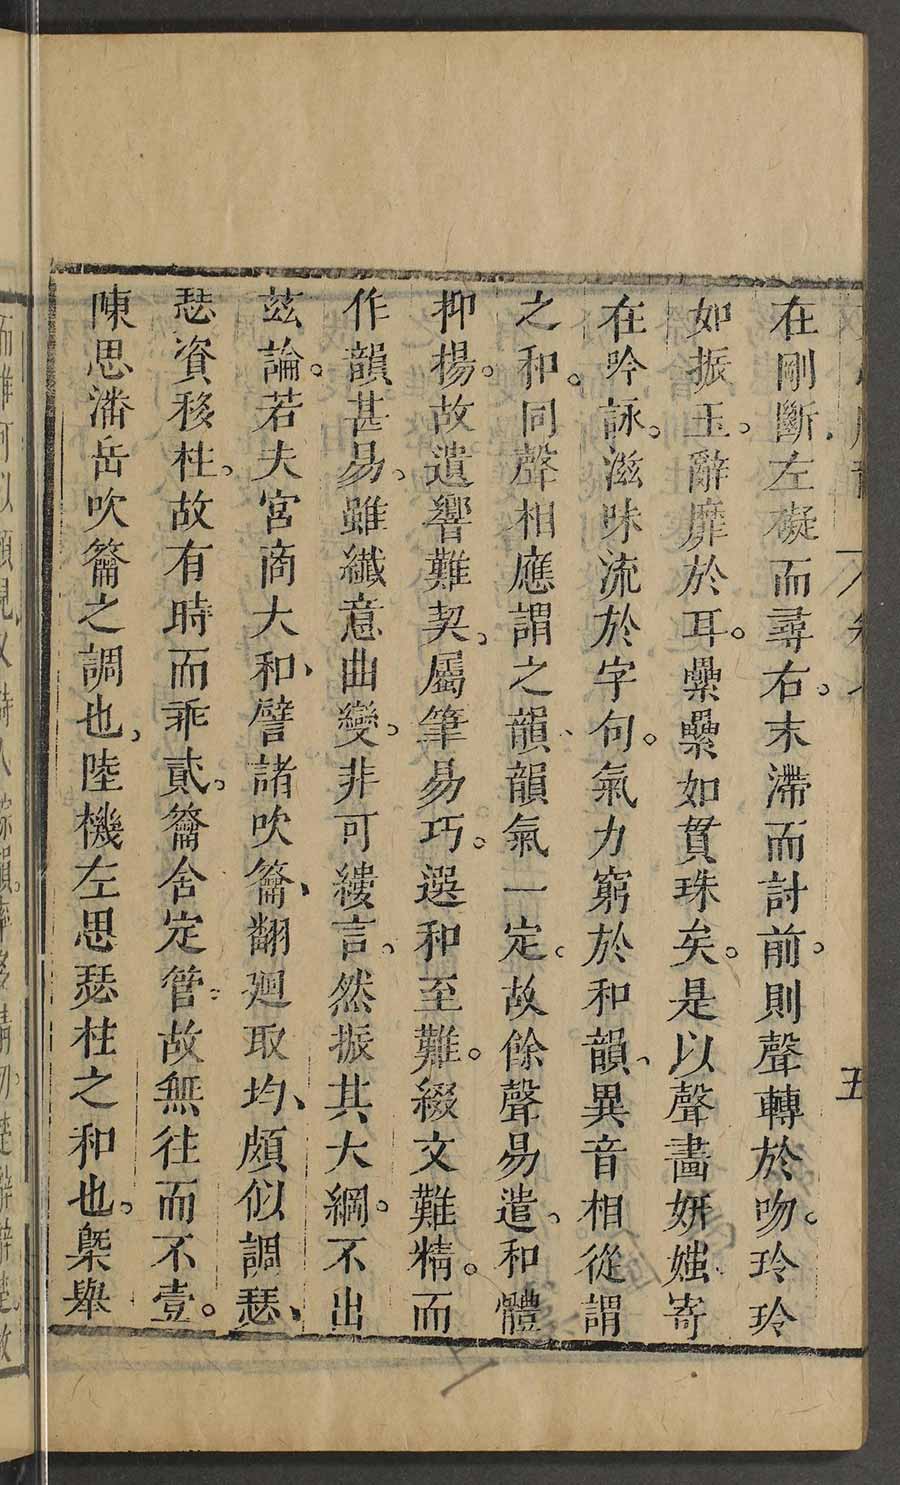 在剛斷左礙而尋右。末滯而討前。則聲轉於吻。玲玲
如振玉。辭靡於耳。纍纍如貫珠矣。是以聲畫妍媸寄
在吟詠。滋味流於字句。氣力窮於和韻、異音相從謂
之和。同聲相應謂之韻、韻氣一定。故餘聲易遣、和體
抑揚。故遺響難契、屬筆易巧。選和至難。綴文難精。而
作韻甚易、雖纖意曲變。非可縷言、然振其大綱。不出
茲論。若夫宮商大和、譬諸吹籥、翻迴取均、頗似調瑟、
瑟資移柱。故有時而乖貳。籥含定管。故無往而不壹。
陳思潘岳吹籥之調也、陸機左思瑟柱之和也。槩舉
五